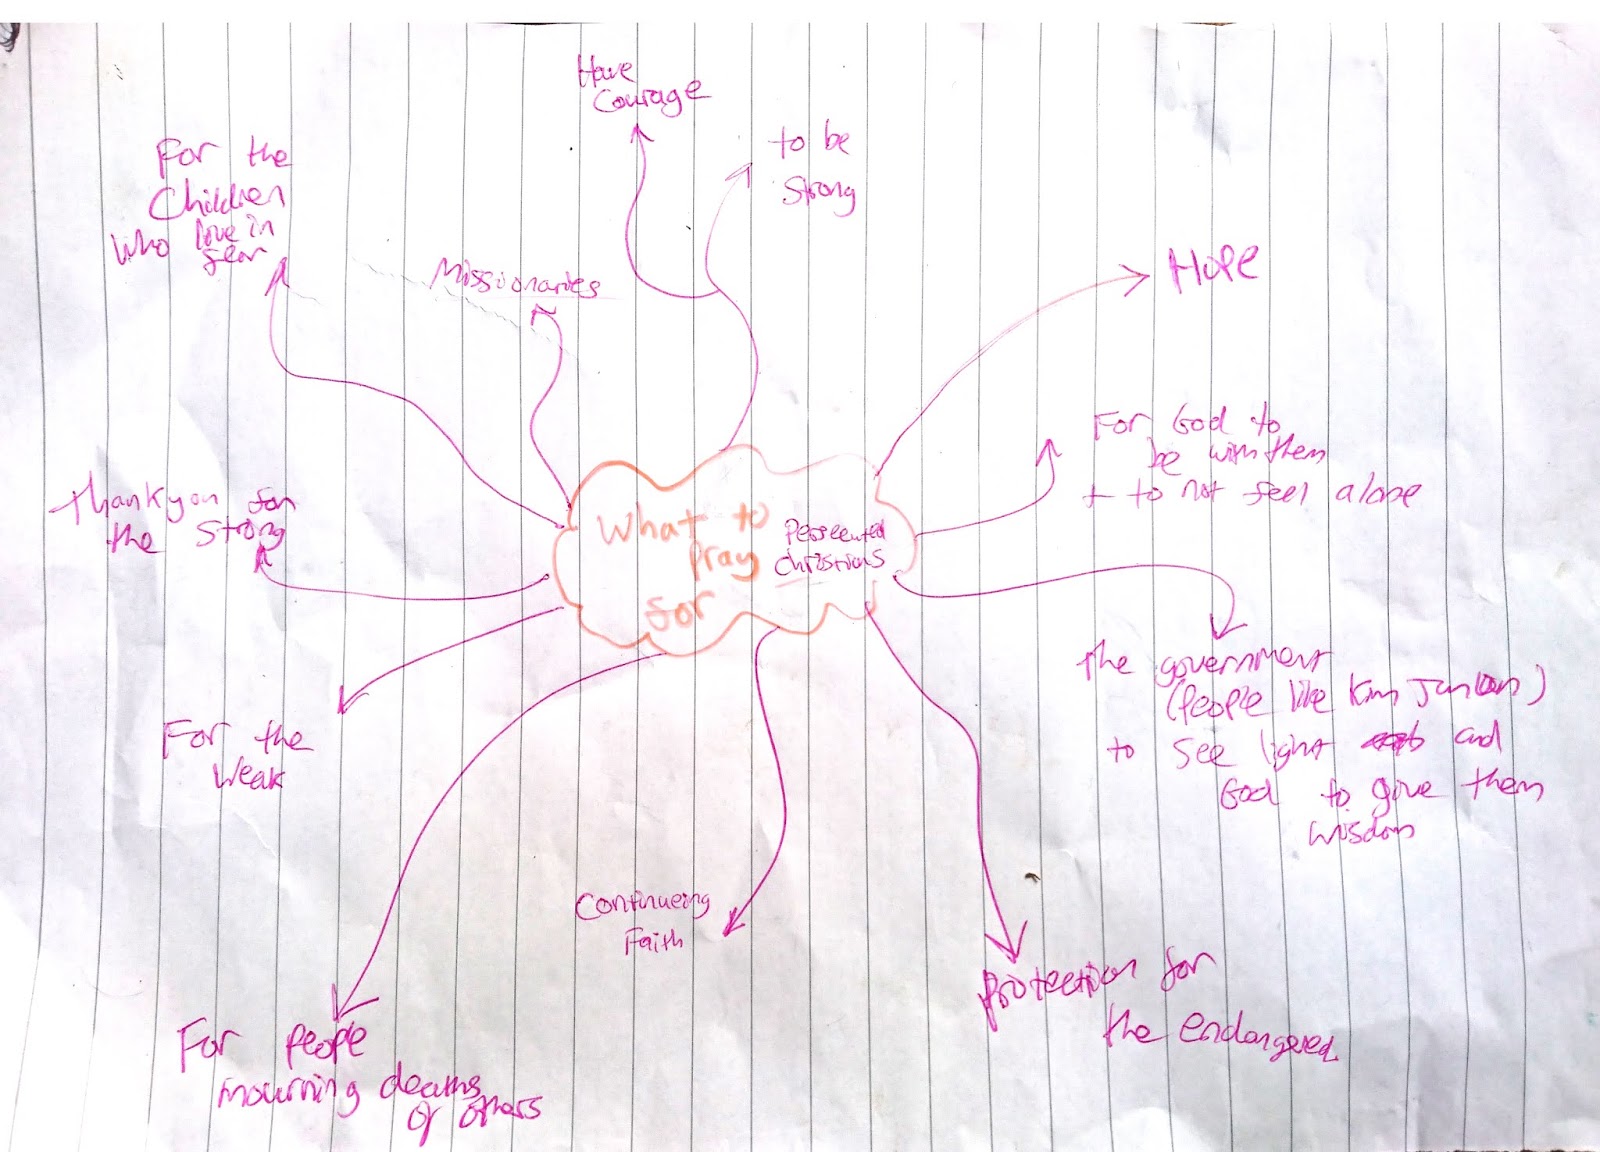 What to
Pray
for
Persecuted
Christians
Have
Courage
to be
Strong
Hope
For God to
be with them
+ to not feel alone
the government
(People like Kim Jun
to see light and
God to give them
wisdom
Protection for
the endangered
Continueing
Faith
For People
mourning deaths
of others
For the
Weak
Thankyou for
the Strong
For the
Children
Who love in
fear
Missionaries